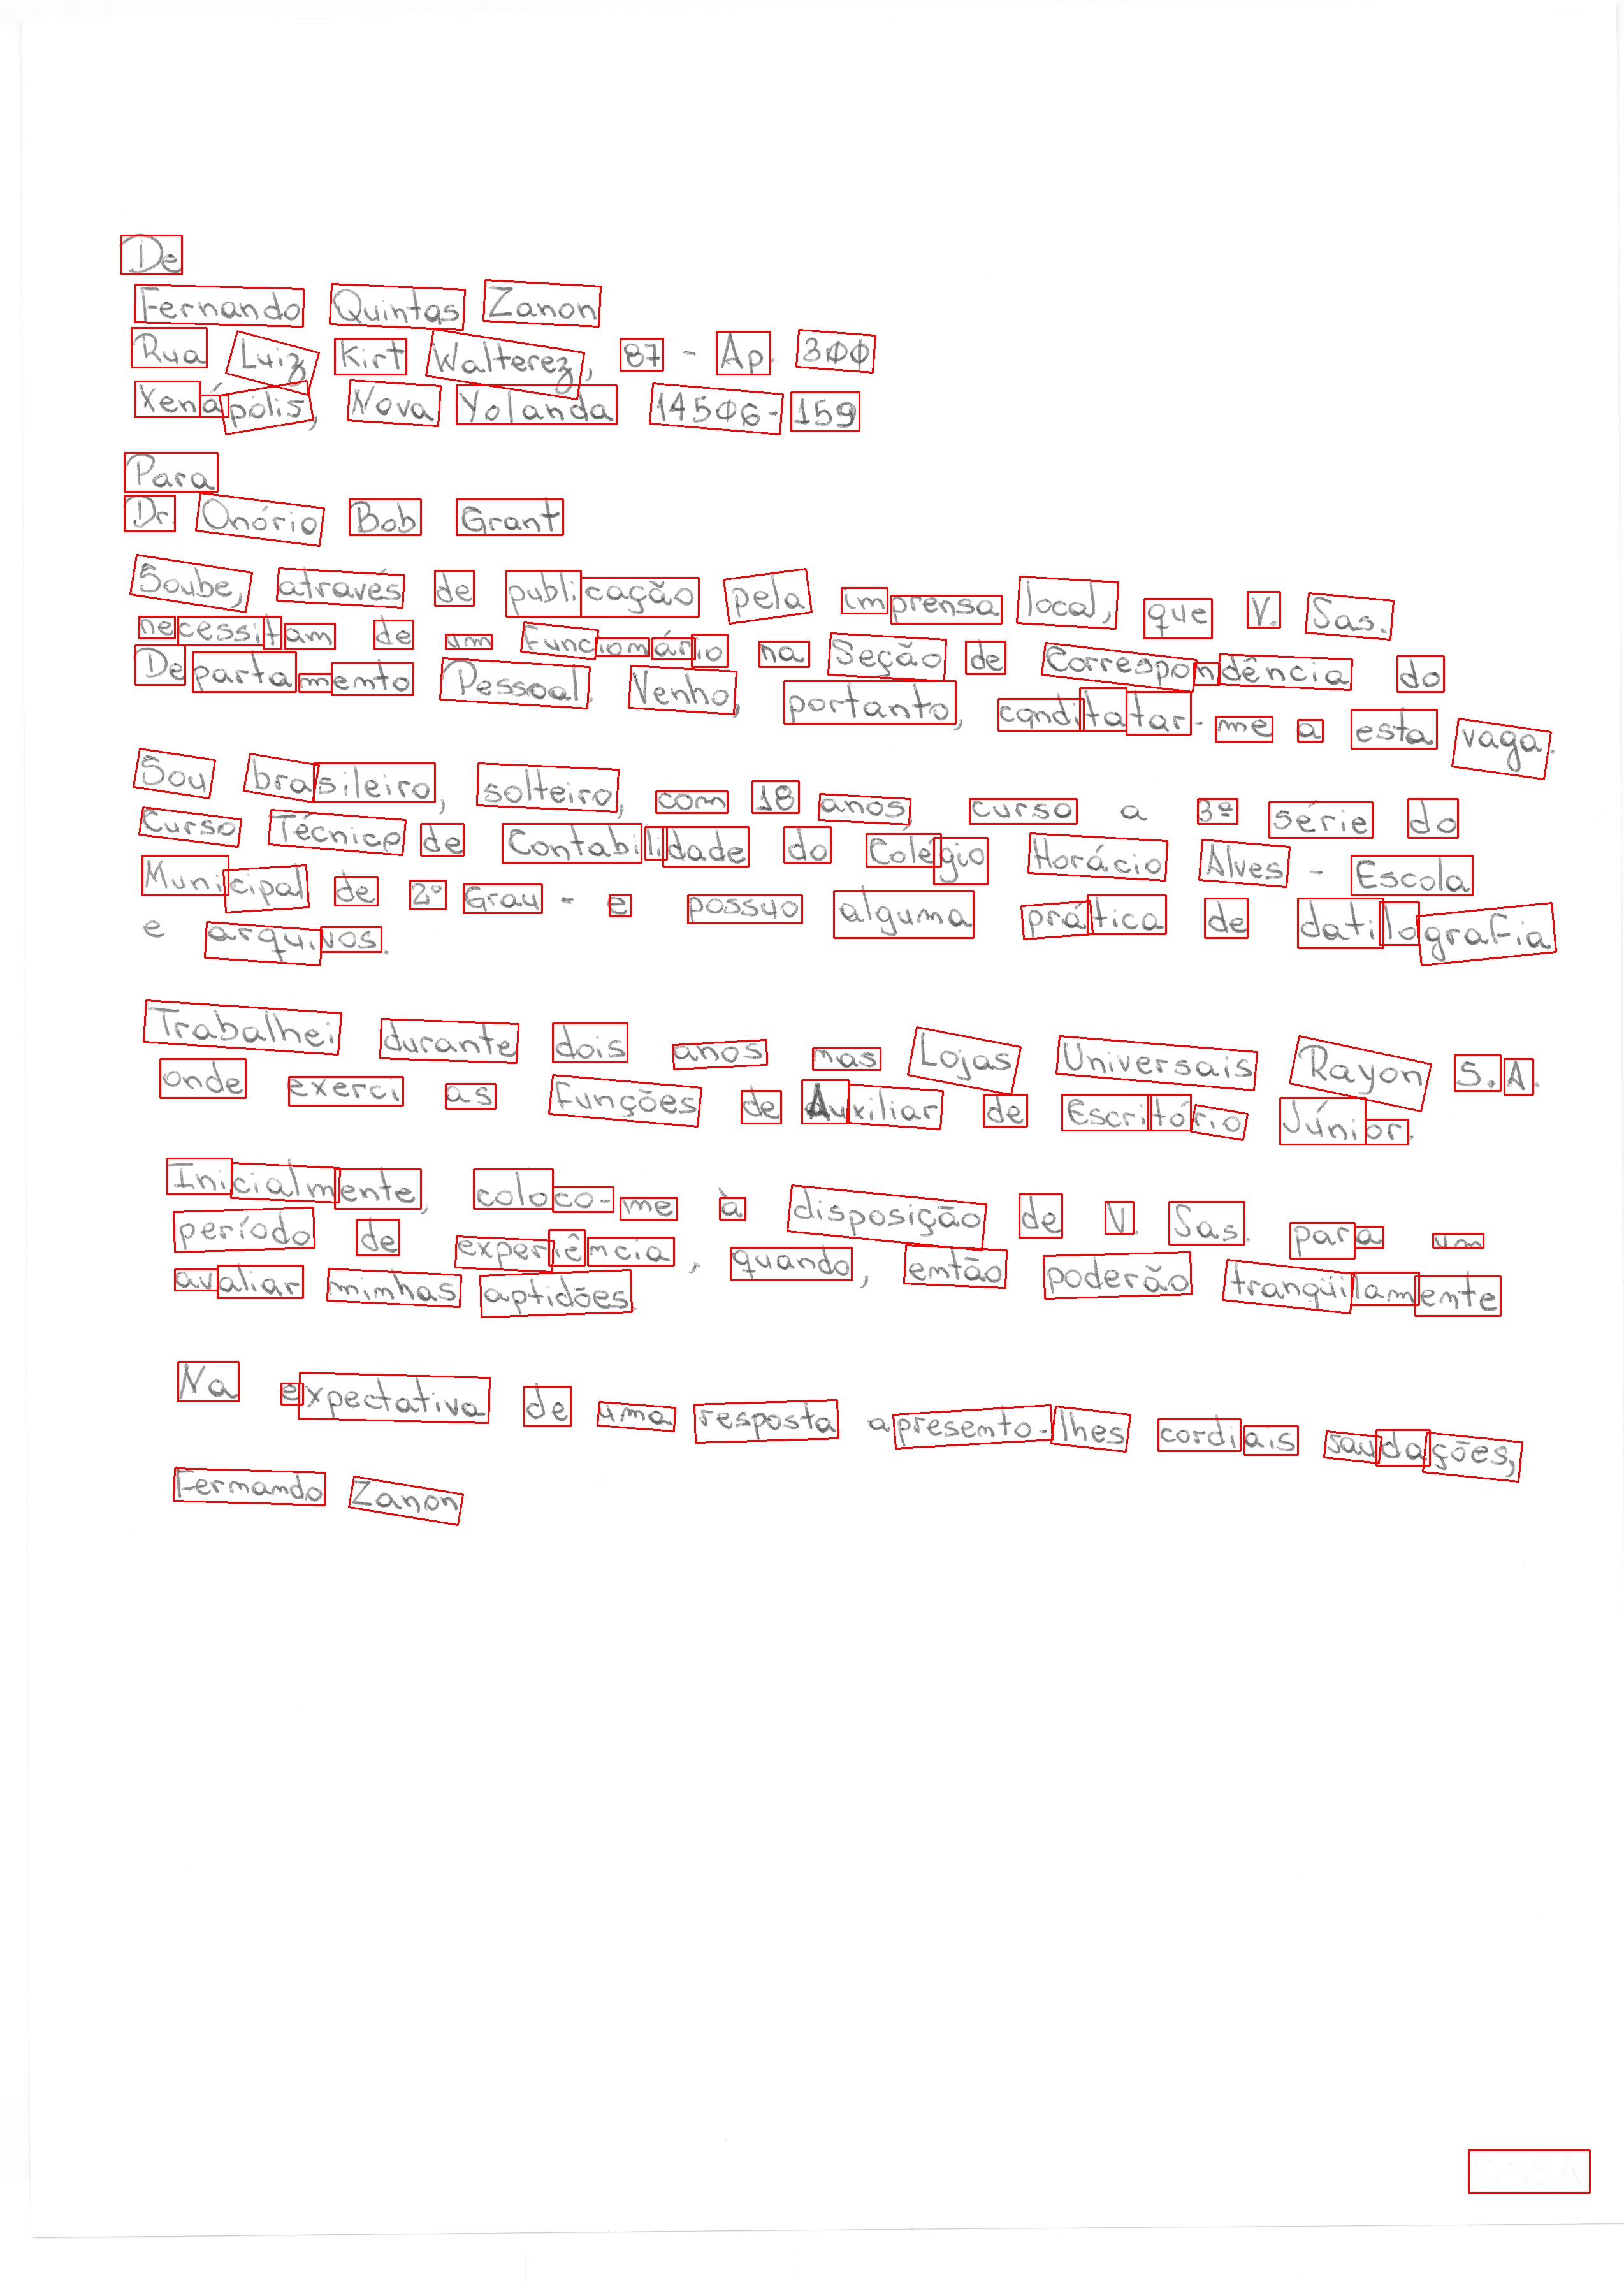 De
Fernando Quintas Zanon
Rua Luiz Kirt Walterez, 87 - Ap. 300
Xenápolis, Nova Yolanda 14506-159
Para
Dr. Onório Bob Grant
Soube, através de publicação pela imprensa local, que V. Sas.
necessitam de um funcionário na Seção de Correspondência do
Departamento Pessoal. Venho, portanto, canditatar-me a esta vaga.
Sou brasileiro, solteiro, com 18 anos, curso a 3ª série do
Curso Técnico de Contabilidade do Colégio Horácio Alves - Escola
Municipal de 2º Grau - e possuo alguma prática de datilografia
e arquivos.
Trabalhei durante dois anos nas Lojas Universais Rayon S.A.
onde exerci as funções de Auxiliar de Escritório Júnior.
Inicialmente, coloco-me à disposição de V. Sas. para um
período de experiência, quando, então poderão tranqüilamente
avaliar minhas aptidões.
Na expectativa de uma resposta apresento-lhes cordiais saudações,
Fernando Zanon